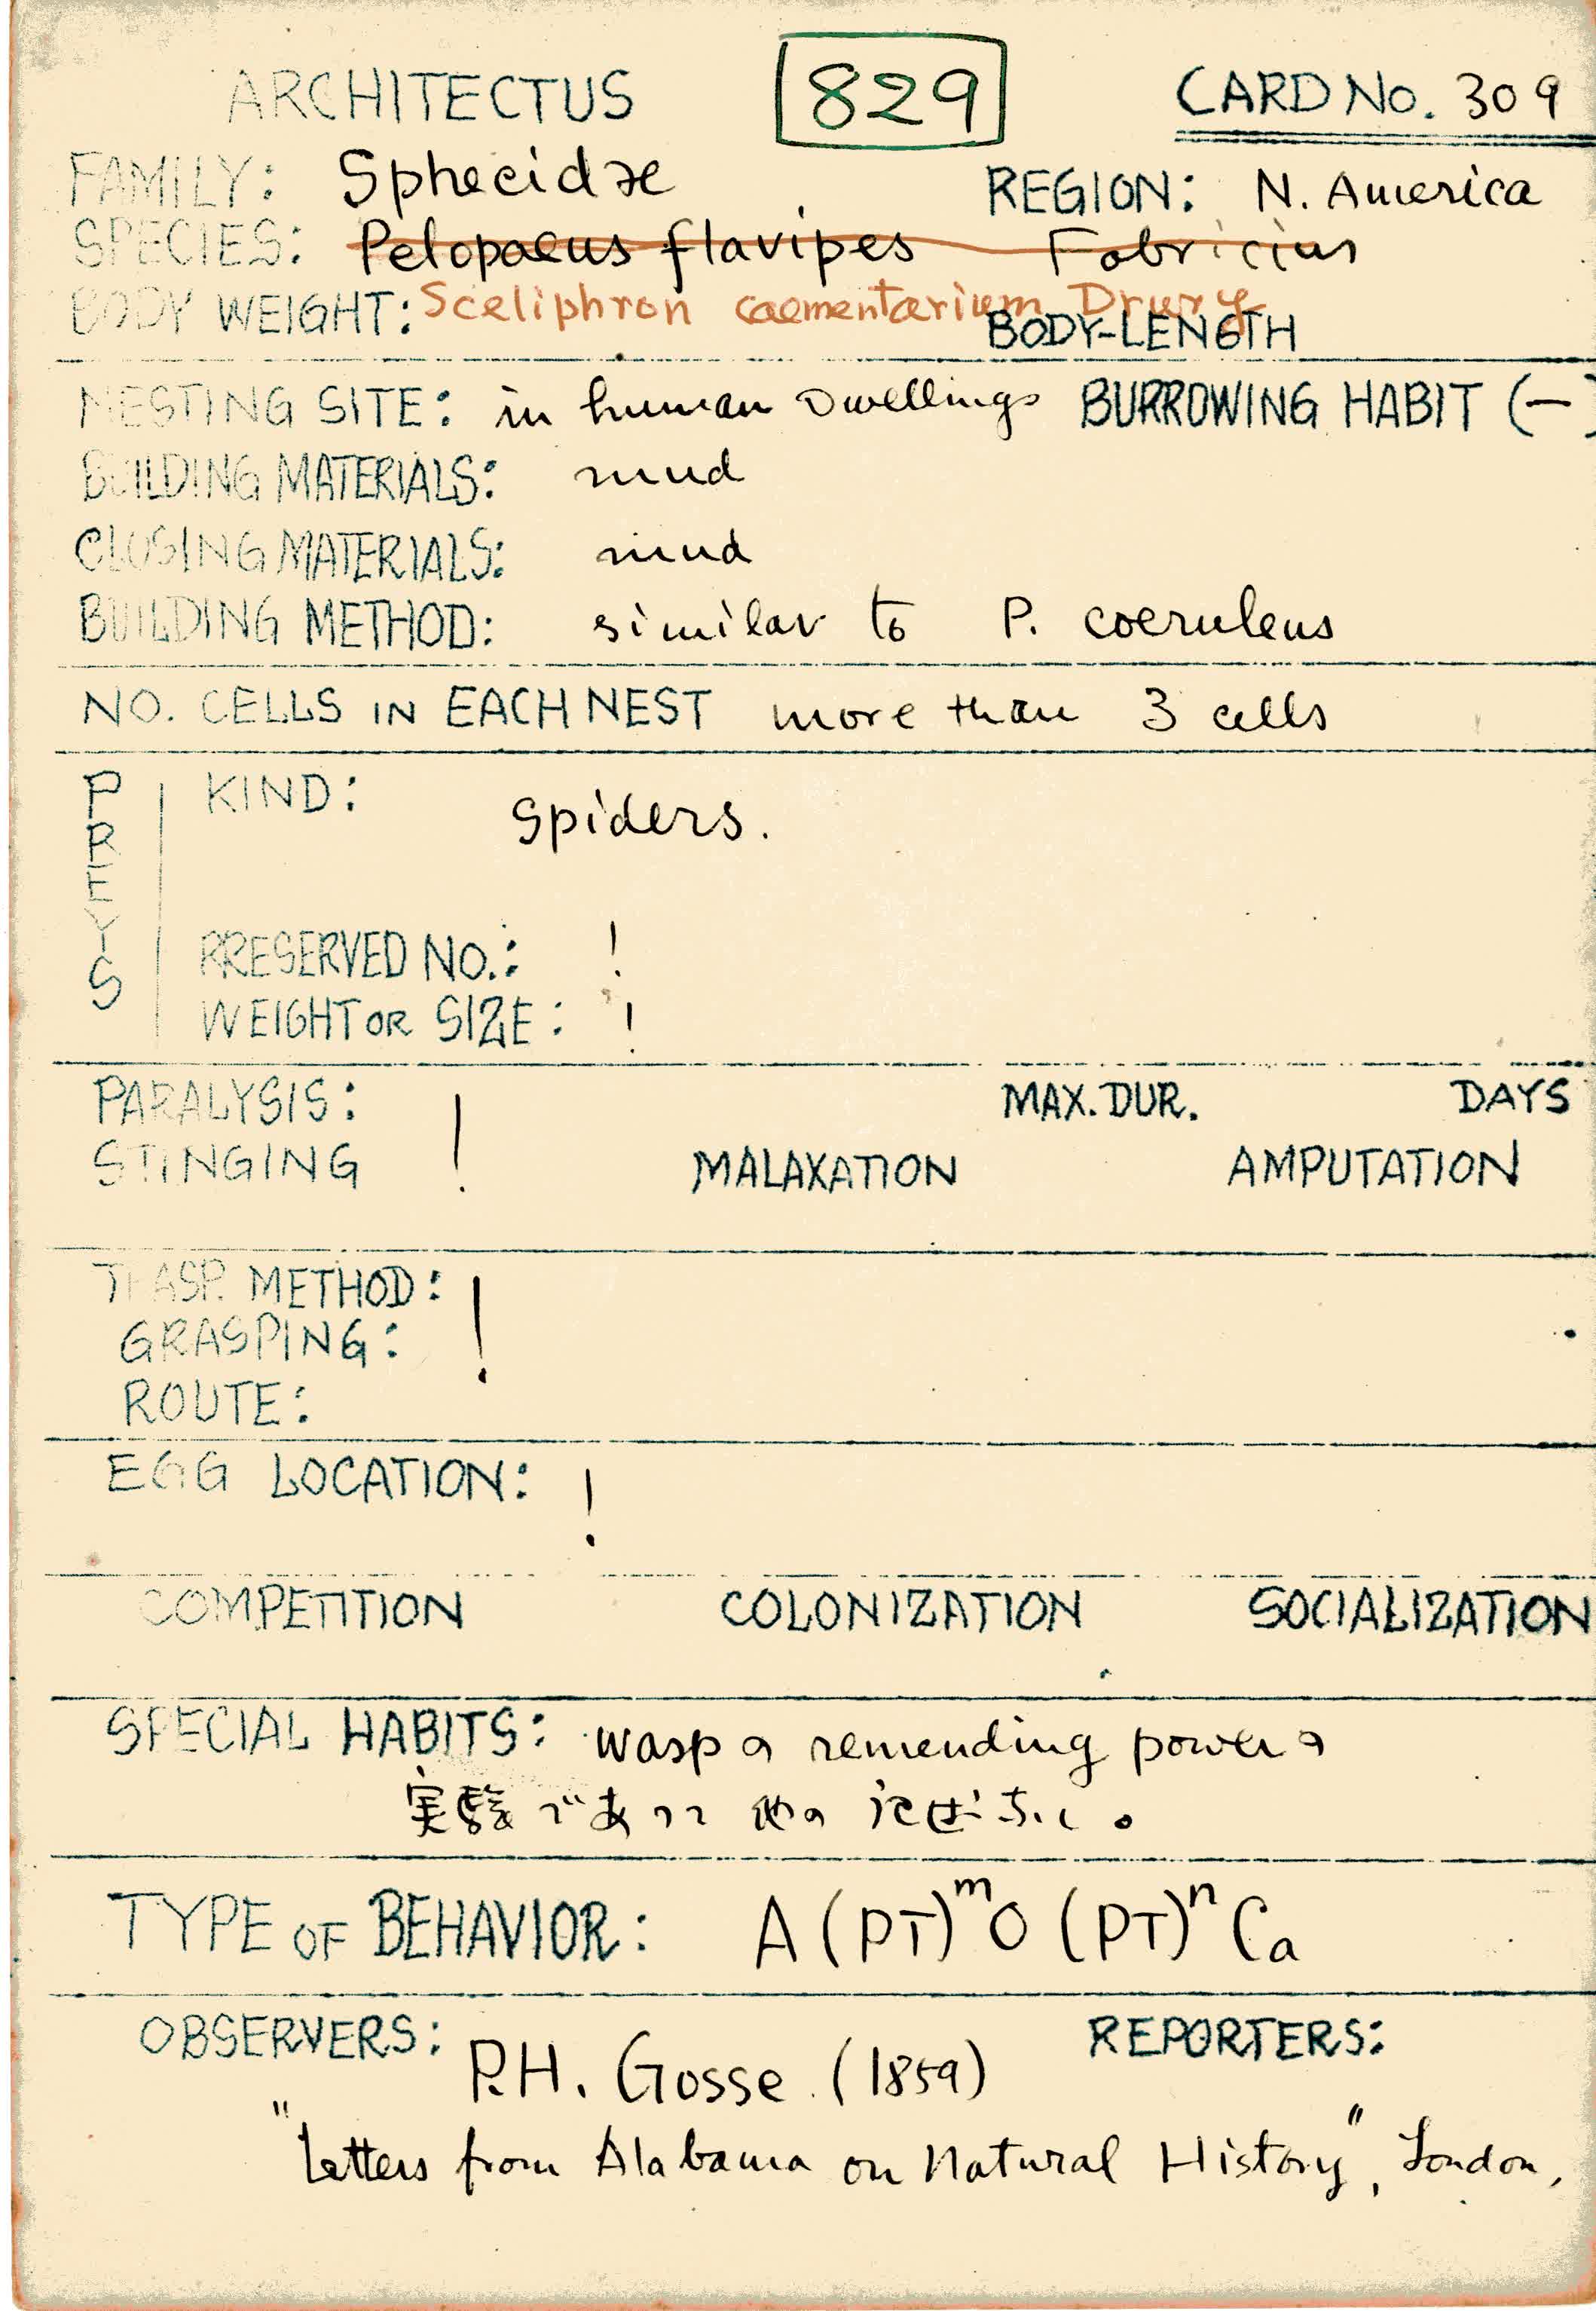 ARCHITECTUS 829 CARD No. 309
FAMILY: Sphecidae REGION: N. America
SPECIES: Pelopaeus flavipes Fabricius
BODY WEIGHT: Sceliphron caementarium Drury BODY-LENGTH
NESTING SITE: in human dwellings BURROWING HABIT (-)
BUILDING MATERIALS: mud
CLOSING MATERIALS: mud
BUILDING METHOD: similar to P. coeruleus
NO. CELLS IN EACH NEST more than 3 cells
PREYS
KIND: Spiders.
PRESERVED NO.: !
WEIGHT OR SIZE: !
PARALYSIS: ! MAX. DUR. DAYS
STINGING MALAXATION AMPUTATION
TRASP. METHOD: !
GRASPING:
ROUTE:
EGG LOCATION: !
COMPETITION COLONIZATION SOCIALIZATION
SPECIAL HABITS: wasp の remending power の
実験であって 他の
TYPE OF BEHAVIOR: A (PT)^m O (PT)^n Ca
OBSERVERS: P.H. Gosse. (1859) REPORTERS:
"Letters from Alabama on Natural History", London,